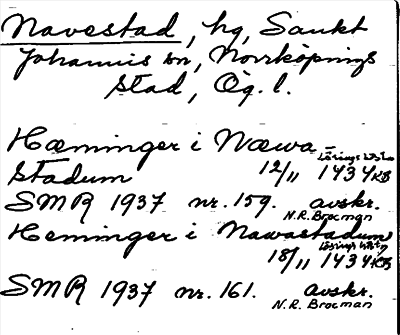 Navestad, hg, Sankt
Johannis sn, Norrköpings
stad, Ög. l.
Hæminger i Næwa-
stadum 12/11 1434 KB
SMR 1937 nr. 159. avskr.
N.R. Brocman
Heminger i Nawastadum
18/11 1434 KB
SMR 1937 nr. 161. avskr.
N.R. Brocman